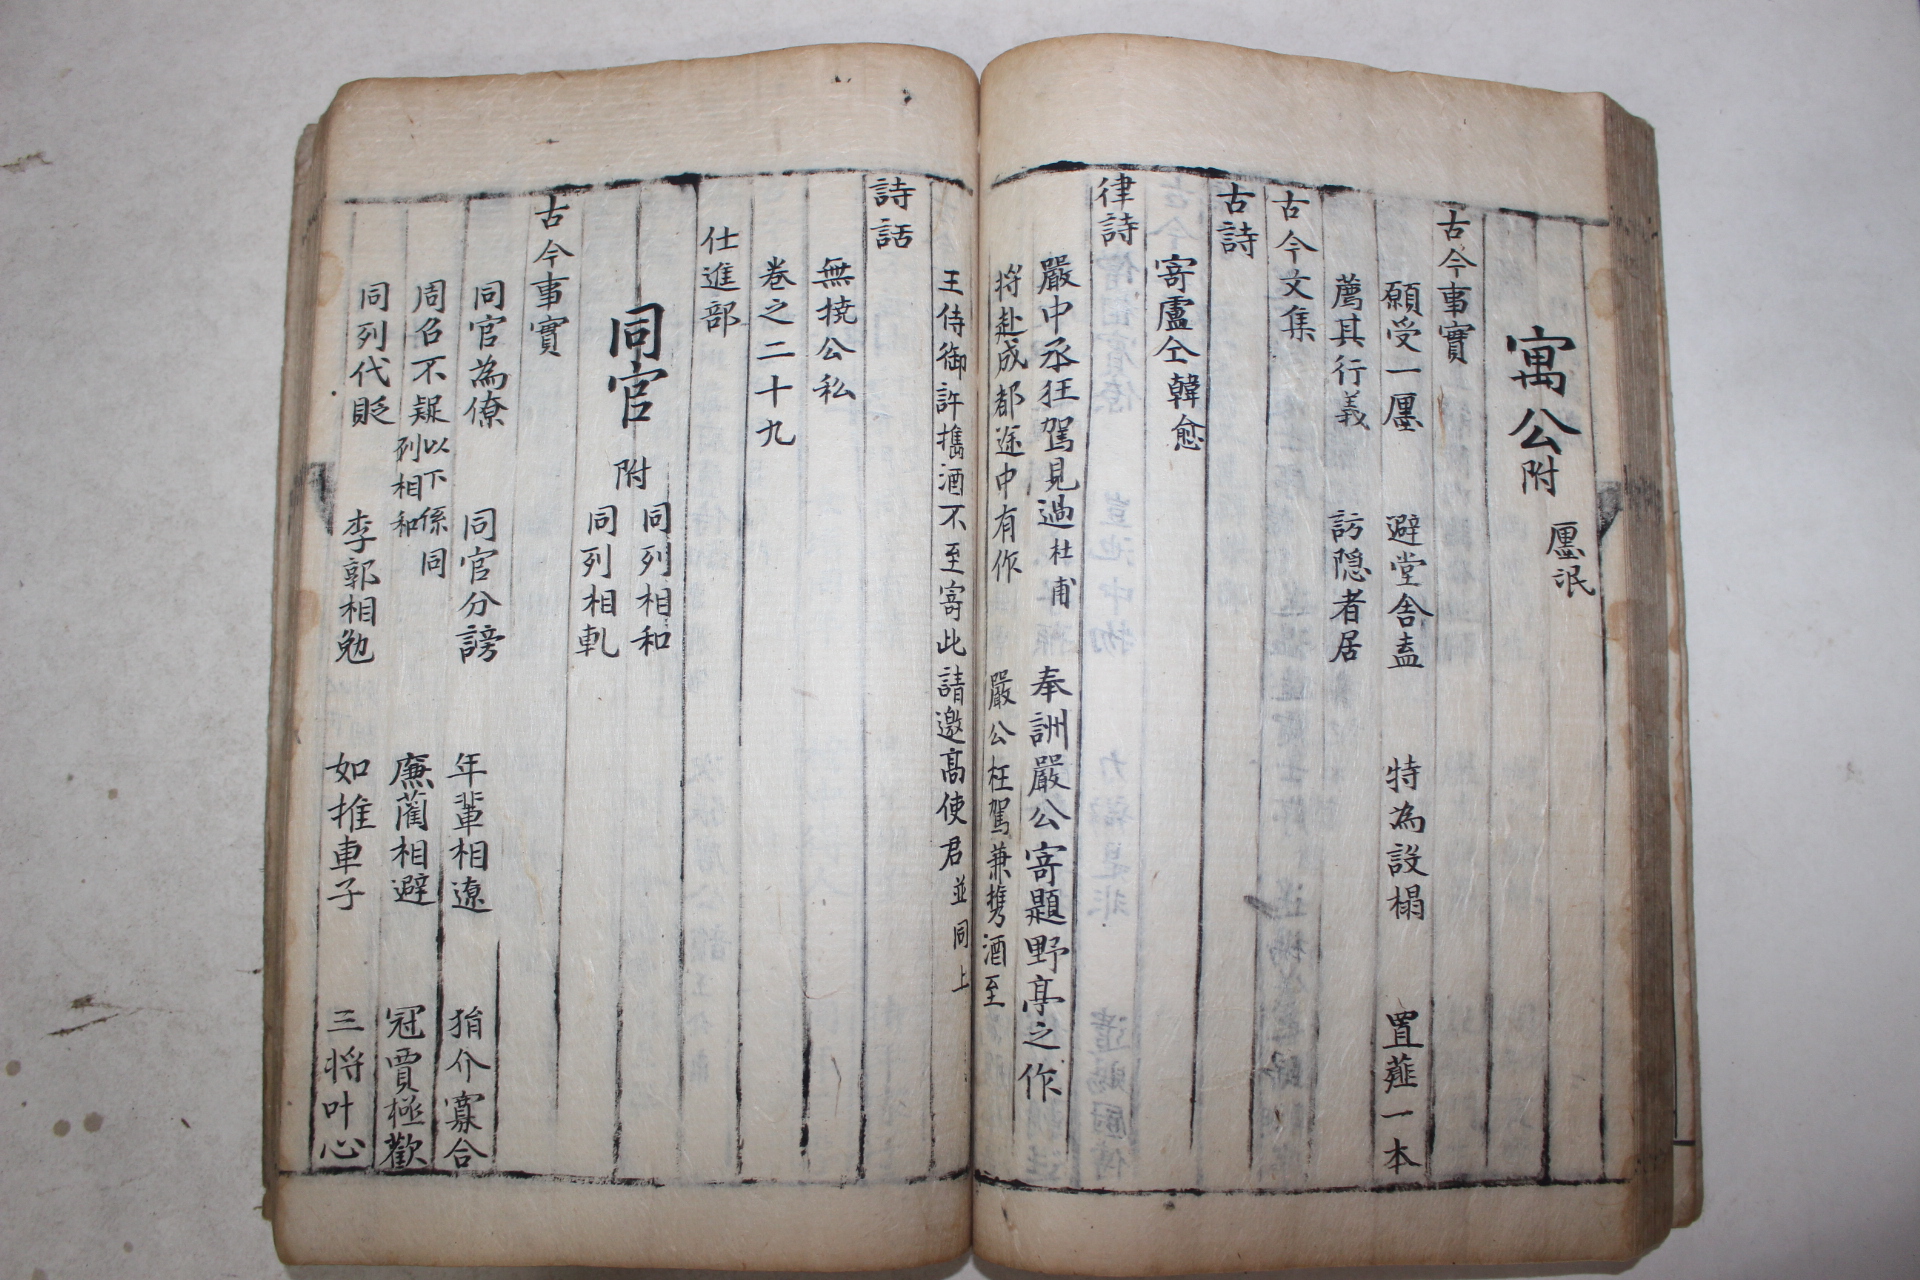 寓公附 㕓氓
古今事實
願受一㕓 避堂舍盖 特為設榻 置薤一本
薦其行義 訪隐者居
古今文集
古詩
寄盧仝韓愈
律詩
嚴中丞狂駕見過杜甫 奉詶嚴公寄題野亭之作
将赴成都途中有作 嚴公枉駕兼携酒至
王侍御許攜酒不至寄此請邀髙使君並同上
詩話
無撓公私
卷之二十九
仕進部
同官 附 同列相和 同列相軋
古今事實
同官為僚 同官分謗 年輩相遼 狷介寡合
周召不疑以下係同列相和 廉藺相避 冠賈極歡
同列代貶 李郭相勉 如推車子 三将叶心